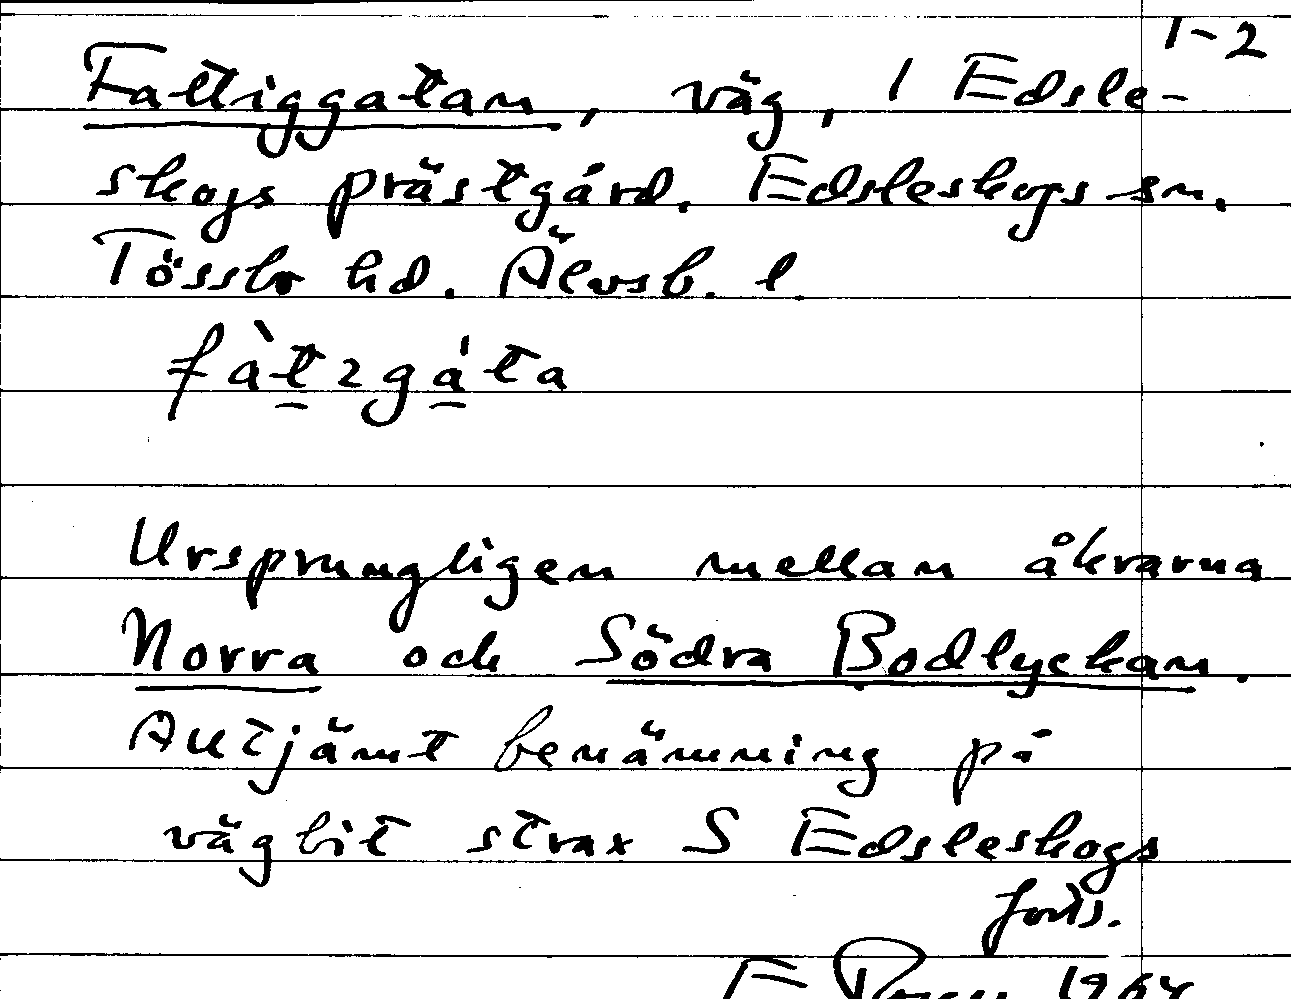 1-2
Fattiggatan, väg, 1 Edsle-
skogs prästgård. Edsleskogs sn.
Tössbo hd. Älvsb. l.
fàtzgáta
Ursprungligen mellan åkrarna
Norra och Södra Bodlyckan.
Alltjämt benämning på
vägbit strax S Edsleskogs
forts.
E 1964